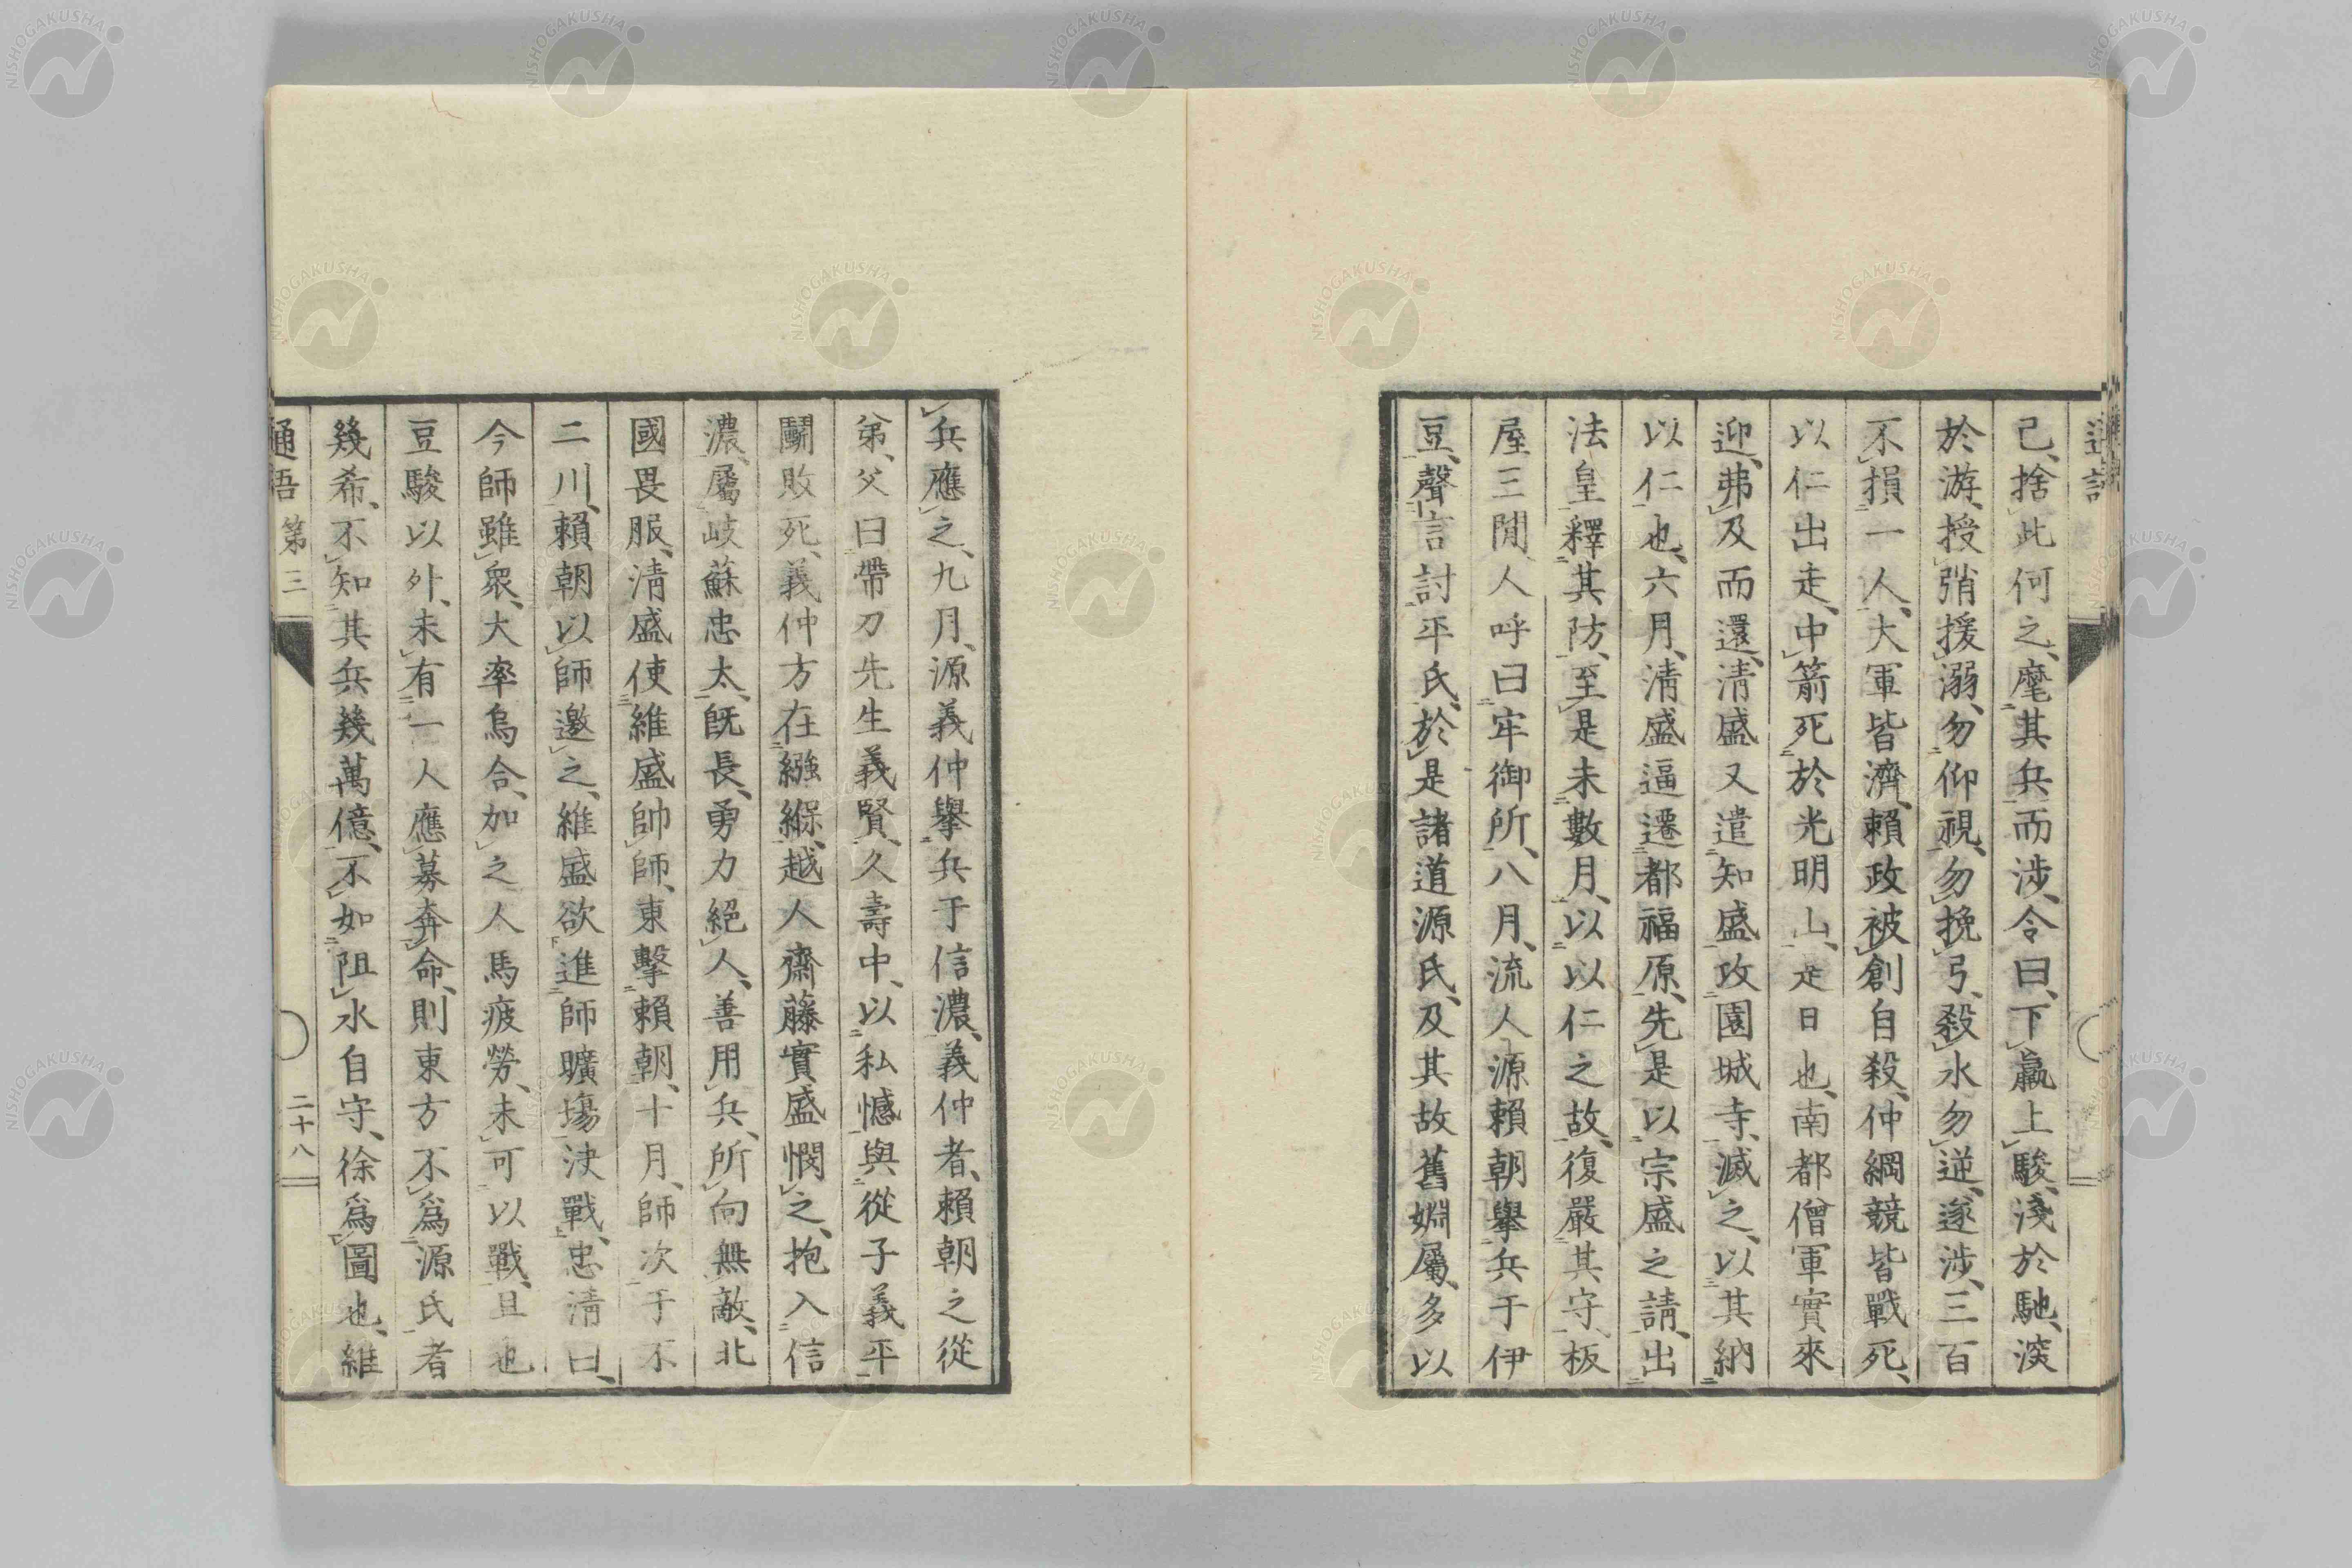 己、捨此何之、麾其兵而渉、令曰、下羸上駿、淺於馳、深
於游、授弰援溺、勿仰視、勿挽弓、殺水勿逆、遂渉、三百
不損一人、大軍皆濟、賴政被創自殺、仲綱競皆戰死、
以仁出走、中箭死於光明山、是日也、南都僧軍實來
迎、弗及而還、清盛又遣知盛攻園城寺、滅之、以其納
以仁也、六月、清盛逼遷都福原、先是以宗盛之請、出
法皇釋其防、至是未數月、以以仁之故、復嚴其守、板
屋三閒、人呼曰牢御所、八月、流人源賴朝擧兵于伊
豆、聲言討平氏、於是諸道源氏、及其故舊婣屬、多以
兵應之、九月、源義仲擧兵于信濃、義仲者、賴朝之從
弟、父曰帶刀先生義賢、久壽中、以私憾與從子義平
鬭敗死、義仲方在繦緥、越人齋藤實盛憫之、抱入信
濃、屬岐蘇忠太、旣長、勇力絕人、善用兵、所向無敵、北
國畏服、清盛使維盛帥師、東擊賴朝、十月、師次于不
二川、賴朝以師邀之、維盛欲進師曠塲決戰、忠清曰、
今師雖衆、大率烏合、加之人馬疲勞、未可以戰、且也
豆駿以外、未有一人應募奔命、則東方不爲源氏者
幾希、不知其兵幾萬億、不如阻水自守、徐爲圖也、維
通語 第三 二十八